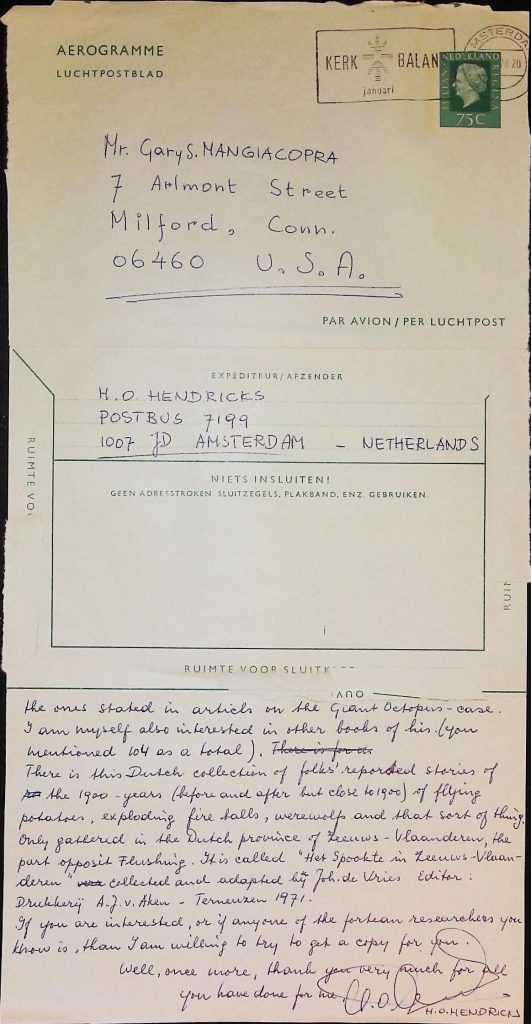 AEROGRAMME
LUCHTPOSTBLAD
KERK BALAN
januari
MSTERDA
NEDERLAND
JULIANA REGINA
75C
Mr. Gary S. MANGIACOPRA
7 Arlmont Street
Milford, Conn.
06460 U.S.A.
PAR AVION / PER LUCHTPOST
EXPEDITEUR/AFZENDER
H.O. HENDRICKS
POSTBUS 7199
1007 JD AMSTERDAM - NETHERLANDS
RUIMTE VOO
NIETS INSLUITEN!
GEEN ADRESSTROKEN, SLUITZEGELS, PLAKBAND, ENZ. GEBRUIKEN.
RUI
RUIMTE VOOR SLUITK
the ones stated in article on the Giant Octopus-case.
I am myself also interested in other books of his. (you
mentioned 104 as a total). There is
There is this Dutch collection of folks' reported stories of
the 1900-years (before and after but close to 1900) of flying
potatoes, exploding fire balls, werewolfs and that sort of thing.
Only gathered in the Dutch province of Zeeuws-Vlaanderen, the
part opposit Flushing. It is called "Het Spookte in Zeeuws-Vlaan-
deren" collected and adapted by Joh. de Vries Editor:
Drukkerij A.J.v. Aken - Terneuzen 1971.
If you are interested, or if anyone of the fortean researchers you
know is, than I am willing to try to get a copy for you.
Well, once more, thank you very much for all
you have done for me.
H.O. HENDRICKS